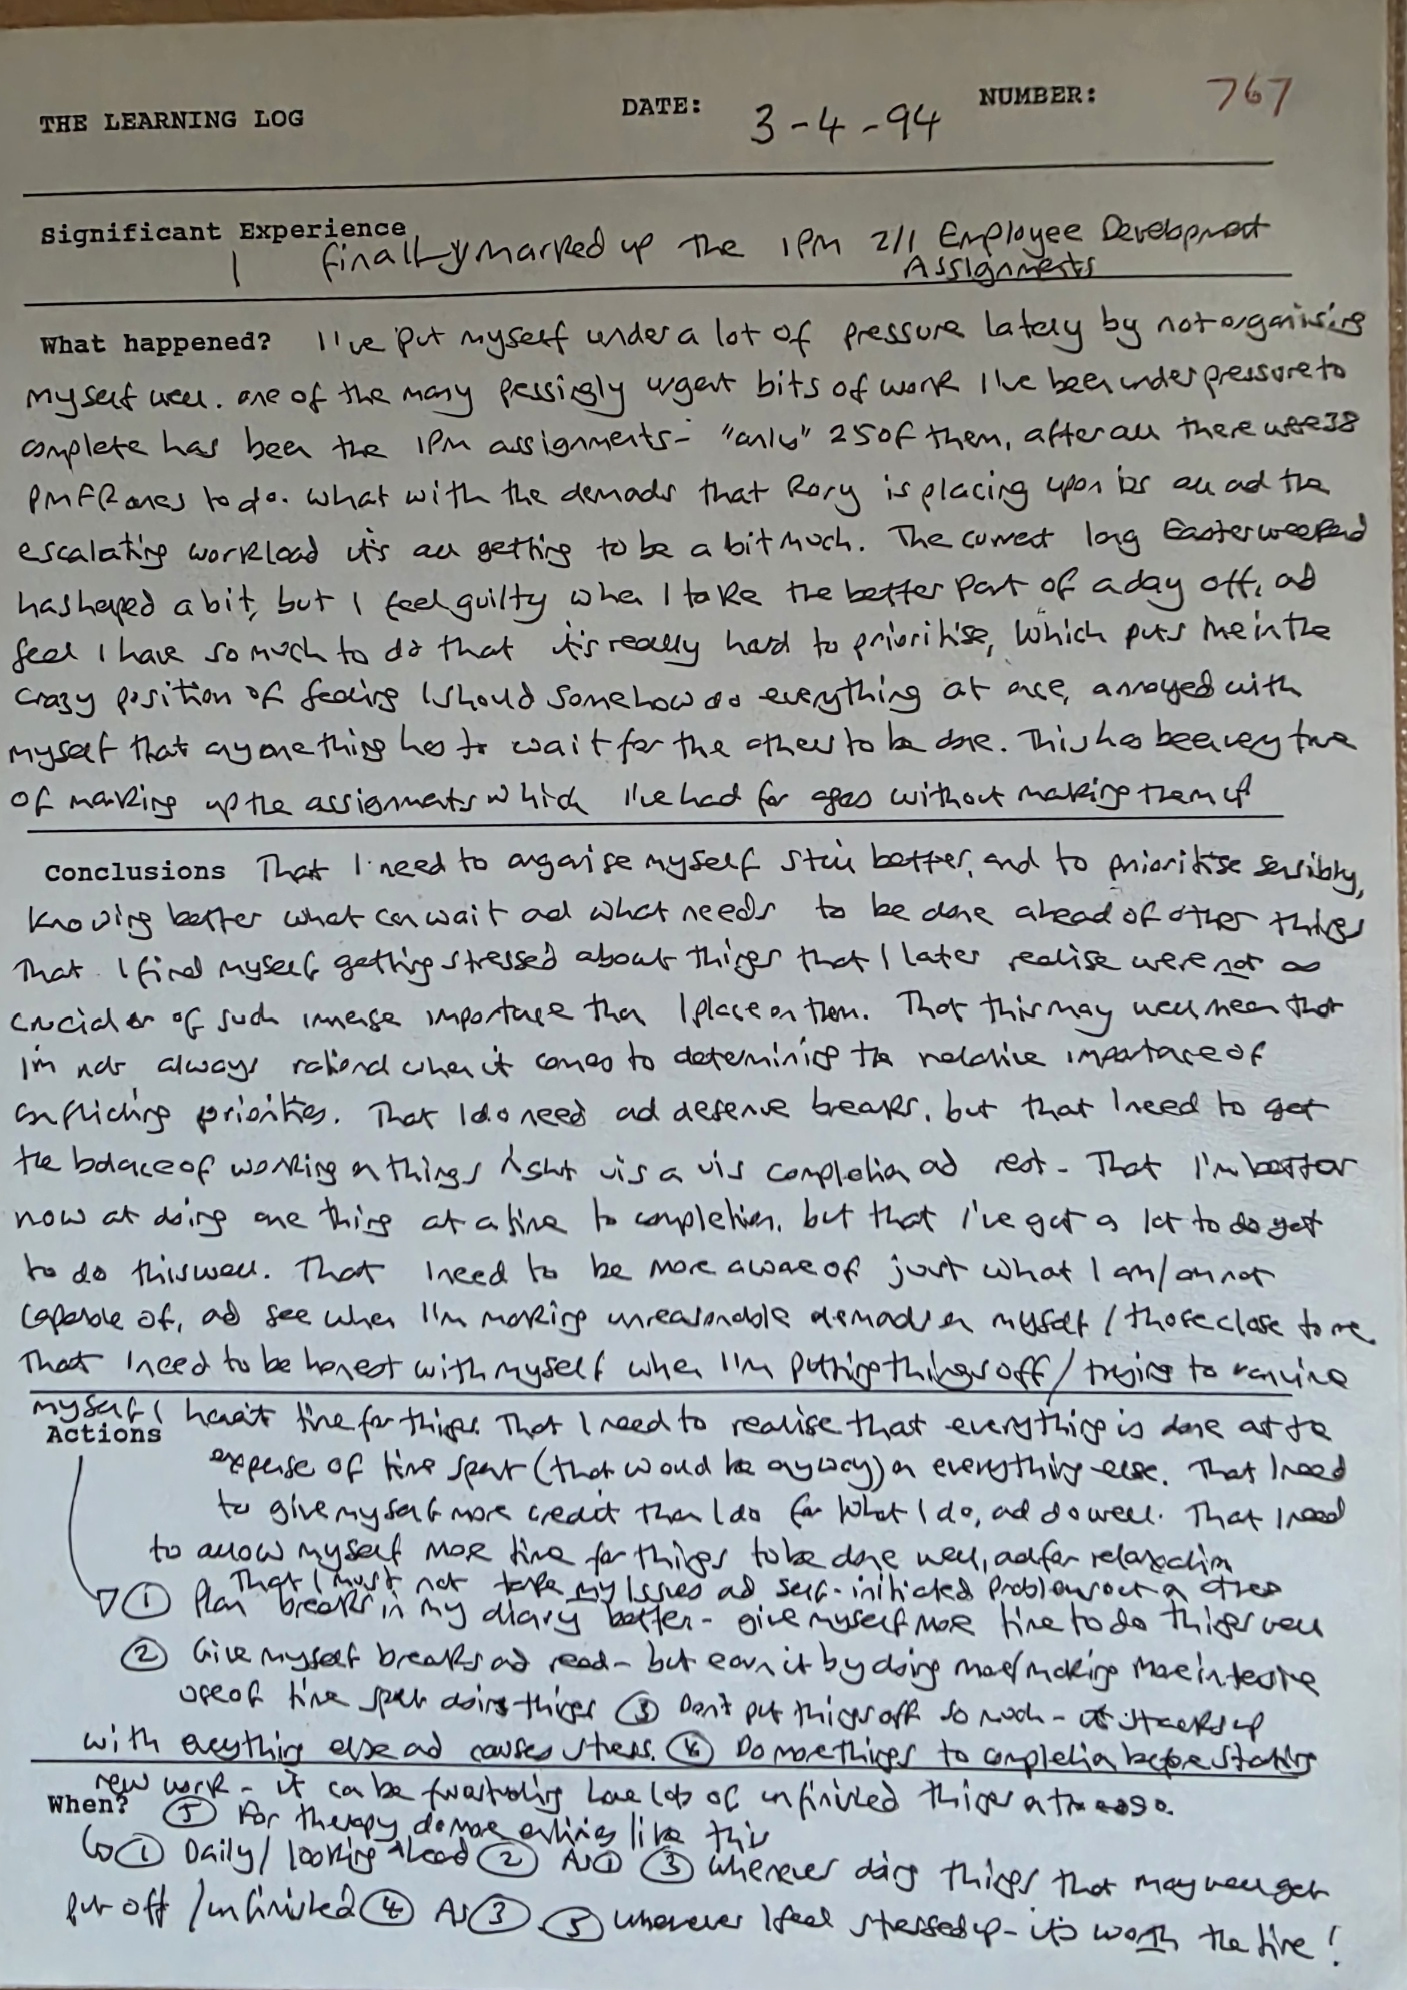 THE LEARNING LOG DATE: 3-4-94 NUMBER: 767
Significant Experience
I finally marked up the IPM 2/1 Employee Development
Assignments
What happened? I've put myself under a lot of pressure lately by not organising
myself well. One of the many pressingly urgent bits of work I've been under pressure to
complete has been the IPM assignments - "only" 25 of them, after all there were 38
PMFR ones to do. What with the demands that Rory is placing upon us all and the
escalating workload it's all getting to be a bit much. The current long Easter weekend
has helped a bit, but I feel guilty when I take the better part of a day off, and
feel I have so much to do that it's really hard to prioritise, which puts me in the
crazy position of feeling I should somehow do everything at once, annoyed with
myself that any one thing has to wait for the others to be done. This has been very true
of marking up the assignments which I've had for ages without marking them up
Conclusions That I need to organise myself still better, and to prioritise sensibly,
knowing better what can wait and what needs to be done ahead of other things
That I find myself getting stressed about things that I later realise were not as
crucial or of such immense importance than I place on them. That this may well mean that
I'm not always rational when it comes to determining the relative importance of
conflicting priorities. That I do need and deserve breaks, but that I need to get
the balance of working on things right vis a vis completion and rest - That I'm better
now at doing one thing at a time to completion, but that I've got a lot to do yet
to do this well. That I need to be more aware of just what I am/am not
capable of, and see when I'm making unreasonable demands on myself / those close to me.
That I need to be honest with myself when I'm putting things off / trying to convince
myself I haven't time for things. That I need to realise that everything is done at the
Actions
expense of time spent (that would be anyway) on everything else. That I need
to give myself more credit than I do for what I do, and do well. That I need
to allow myself more time for things to be done well, and for relaxation
That I must not take my issues and self-initiated problems out on others
① Plan breaks in my diary better - give myself more time to do things well
② Give myself breaks and read - but earn it by doing more/making more intensive
use of time spent doing things ③ Don't put things off so much - it stacks up
with everything else and causes stress. ④ Do more things to completion before starting
new work - it can be frustrating have lots of unfinished things at once.
When? ⑤ For therapy do more entries like this
① Daily / looking ahead ② As ① ③ Whenever doing things that may well get
put off / unfinished ④ As ③ ⑤ Whenever I feel stressed up - it's worth the time!